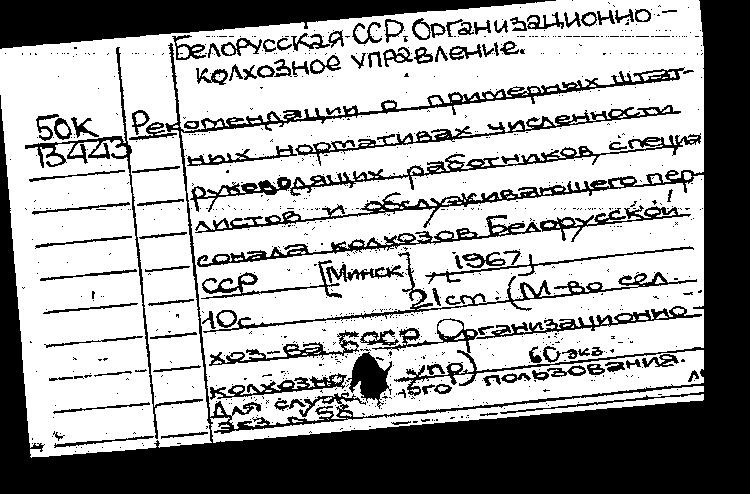 Белорусская ССР. Организационно-
колхозное управление.
50К
13443
Рекомендации о примерных штат-
ных нормативах численности
руководящих работников, специа
листов и обслуживающего пер-
сонала колхозов Белорусской
ССР [Минск], [1967]
10с. 21cm. (М-во сел.
хоз-ва БССР. Организационно-
колхозно упр.) 60 экз.
Для служ ного пользования.
Экз. №58